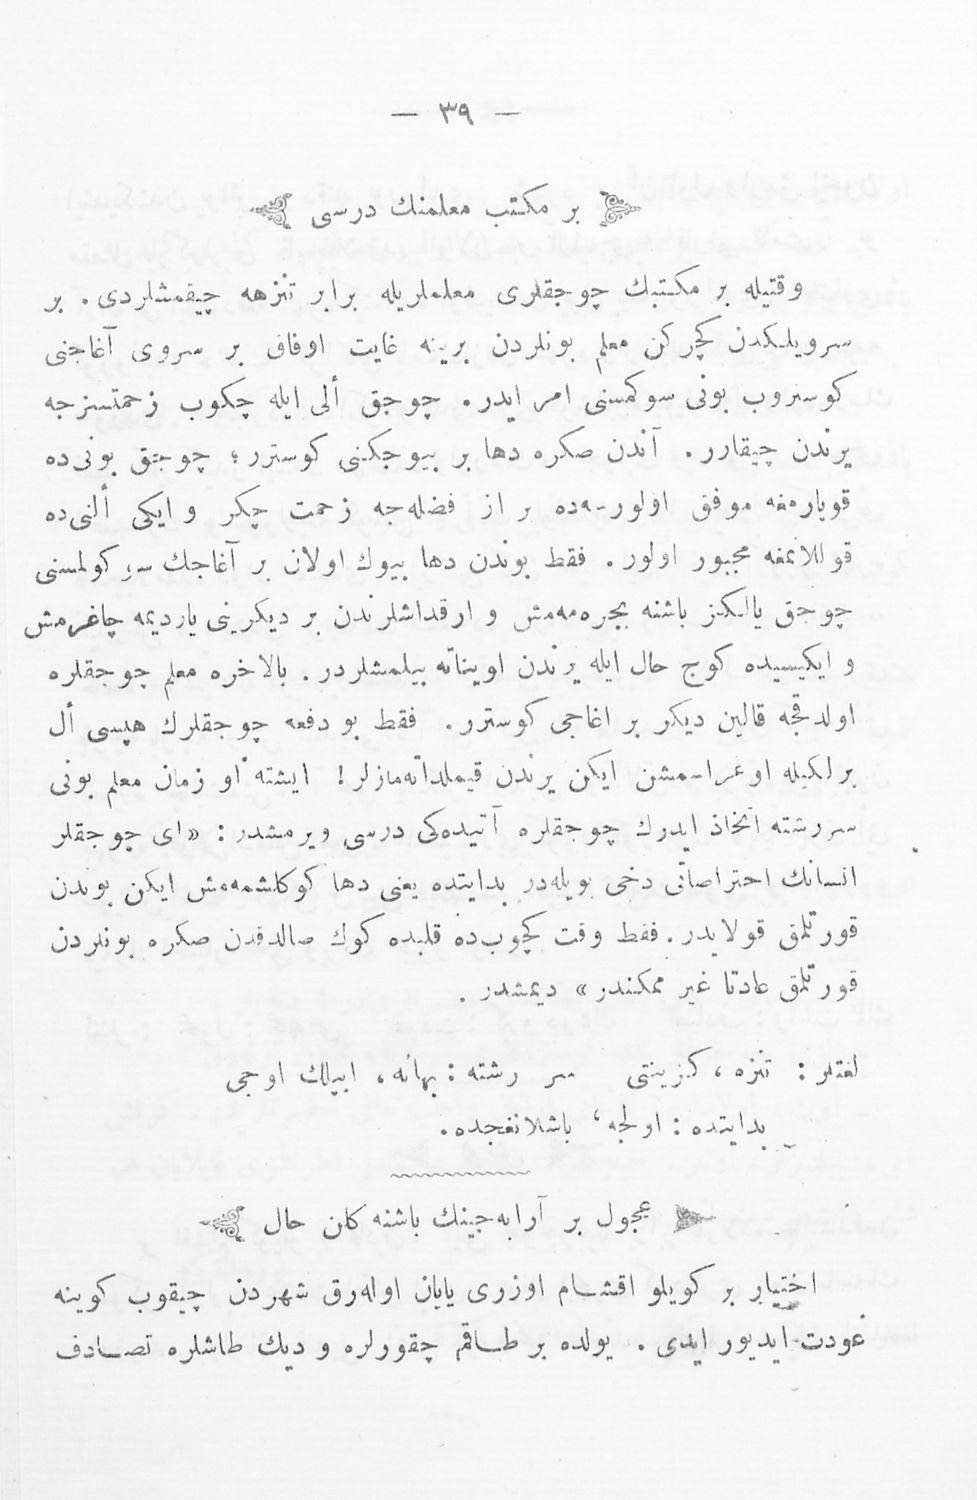 — ٣٩ —
بر مكتب معلمنك درسی
وقتيله بر مكتبك چوجقلری معلملريله برابر تنزهه چيقمشلردی. بر
سرويلكدن كچركن معلم بونلردن برينه غايت اوفاق بر سروی آغاجنی
كوستروب بونی سوكمسنی امر ايدر. چوجق ألی ايله چكوب زحمتسزجه
يرندن چيقارر. آندن صكره دها بر بيوجكنی كوسترر؛ چوجق بونی‌ده
قوپارمغه موفق اولورسه‌ده بر از فضله‌جه زحمت چكر و ايكی ألنی‌ده
قوللانمغه مجبور اولور. فقط بوندن دها بيوك اولان بر آغاجك سوكولمسنی
چوجق يالكز باشنه بجره‌مه‌مش و ارقداشلرندن بر ديكرينی يارديمه چاغرمش
و ايكيسيده كوج حال ايله يرندن اويناته بيلمشلردر. بالاخره معلم چوجقلره
اولدقجه قالين ديكر بر اغاجی كوسترر. فقط بو دفعه چوجقلرك هپسی أل
برلكيله اوغراشمشن ايكن يرندن قيملداته‌مازلر! ايشته او زمان معلم بونی
سررشته اتخاذ ايدرك چوجقلره آتيده‌كی درسی ويرمشدر: «ای چوجقلر
انسانك احتراصاتی دخی بويله‌در بدايتده يعنی دها كوكلشمه‌مش ايكن بوندن
قورتلمق قولايدر. فقط وقت كچوب‌ده قلبده كوك صالدقدن صكره بونلردن
قورتلمق عادتا غير ممكندر» ديمشدر.
لغتلر: تنزه، كزينتی سر رشته: بهانه، ايپلك اوجی
بدايتده: اولجه، باشلانغجده.
عجول بر آرابه‌جينك باشنه كلن حال
اختيار بر كويلو اقشام اوزری يايان اوله‌رق شهردن چيقوب كوينه
عودت ايديور ايدی. يولده بر طاقم چقورلره و ديك طاشلره تصادف